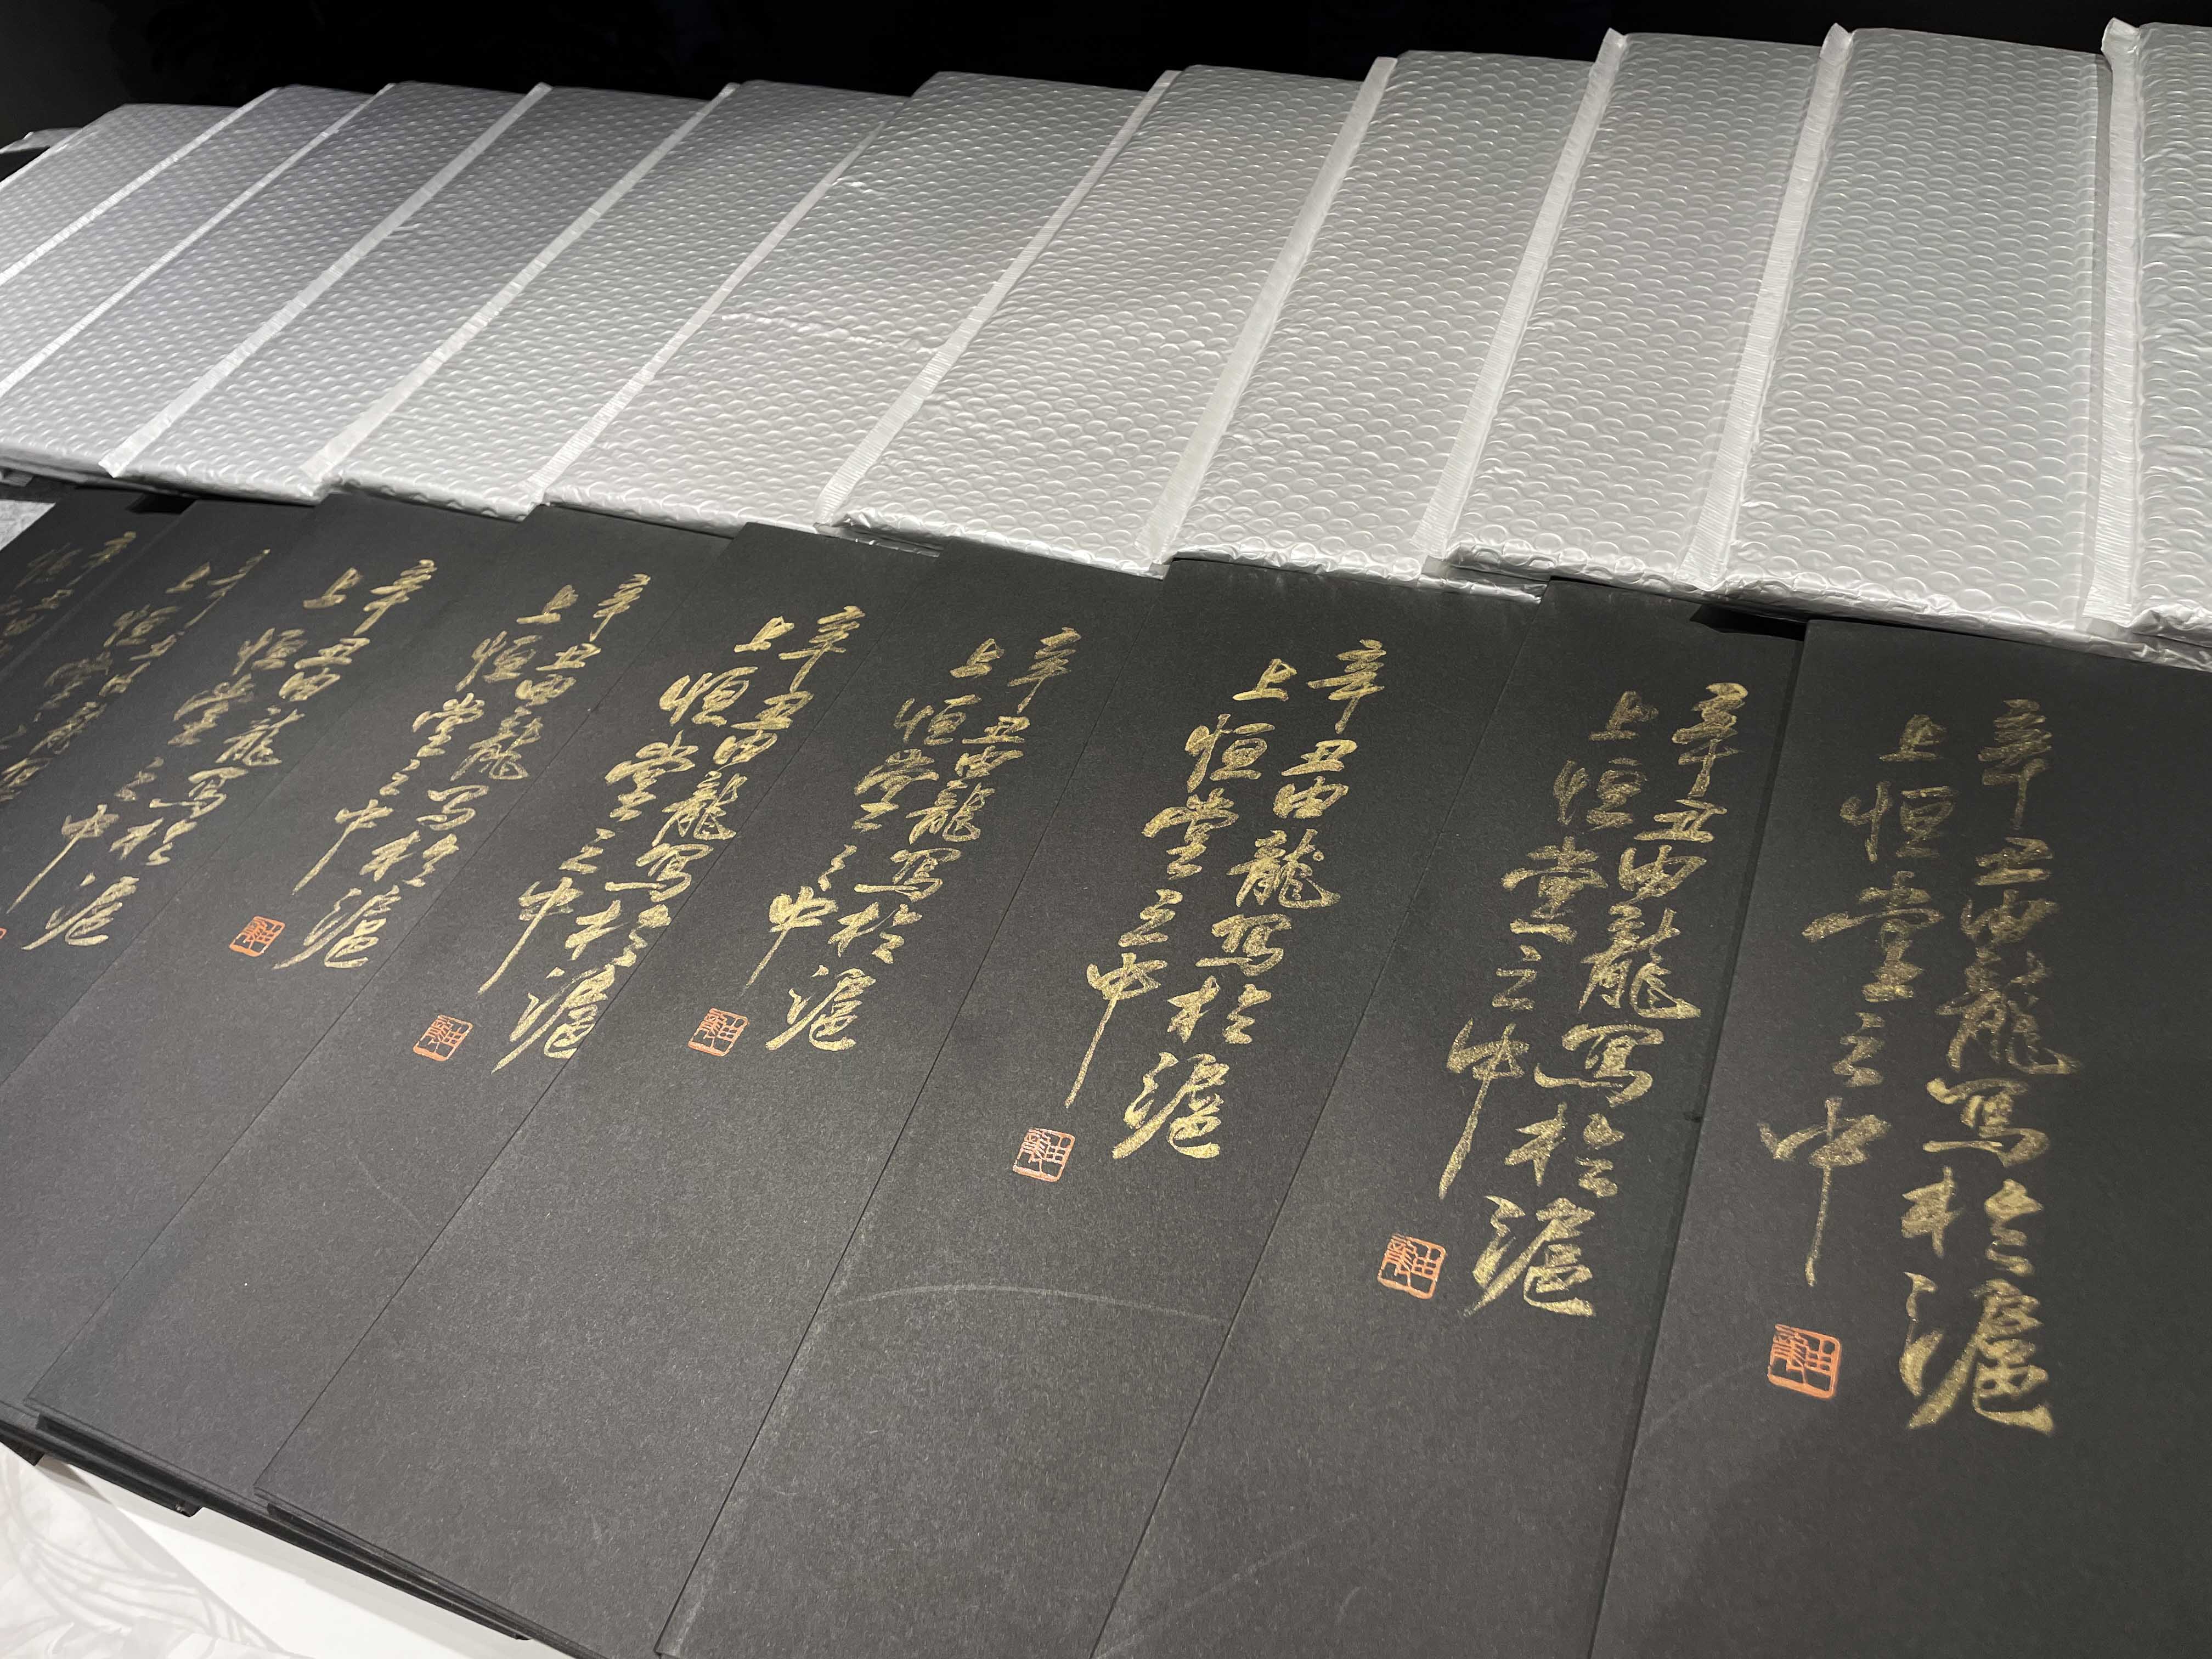 辛丑由龍写於滬
上恒堂之中
辛丑由龍写於滬
上恒堂之中
辛丑由龍写於滬
上恒堂之中
辛丑由龍写於滬
上恒堂之中
辛丑由龍写於滬
上恒堂之中
辛丑由龍写於滬
上恒堂之中
辛丑由龍写於滬
上恒堂之中
辛丑由龍写於滬
上恒堂之中